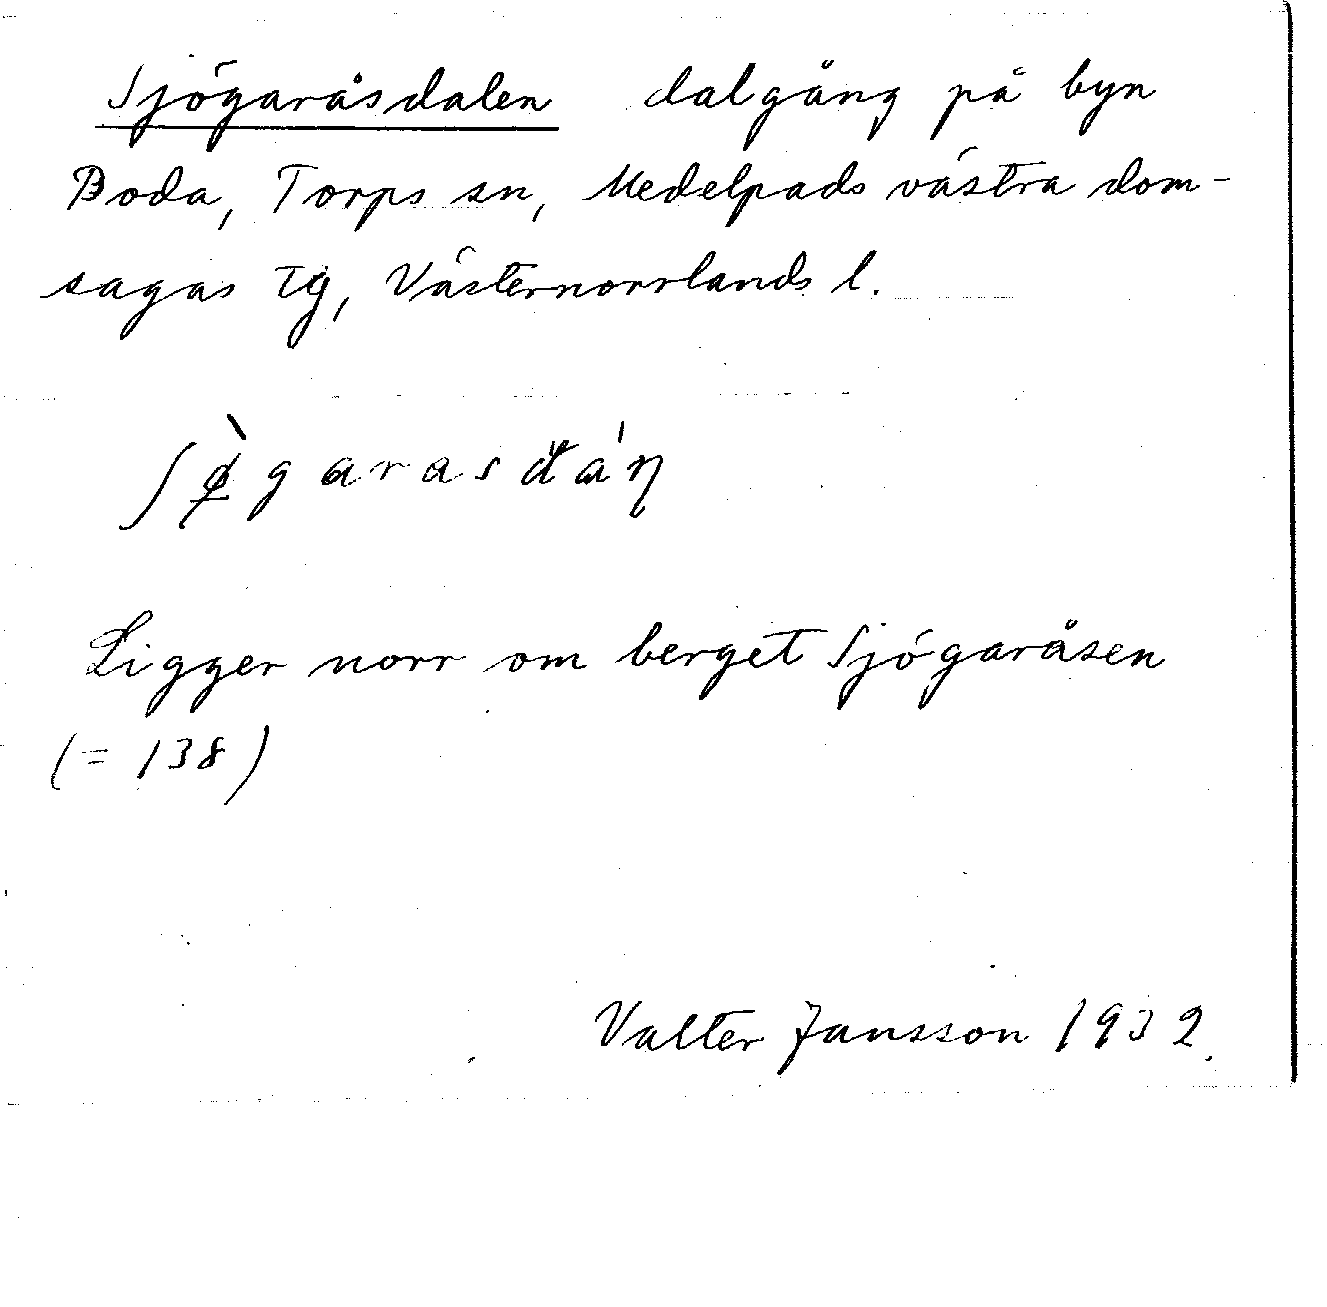 Sjögaråsdalen dalgång på byn
Boda, Torps sn, Medelpads västra dom-
sagas tg, Västernorrlands l.
Ligger norr om berget Sjögaråsen
(= 138)
Valter Jansson 1932.